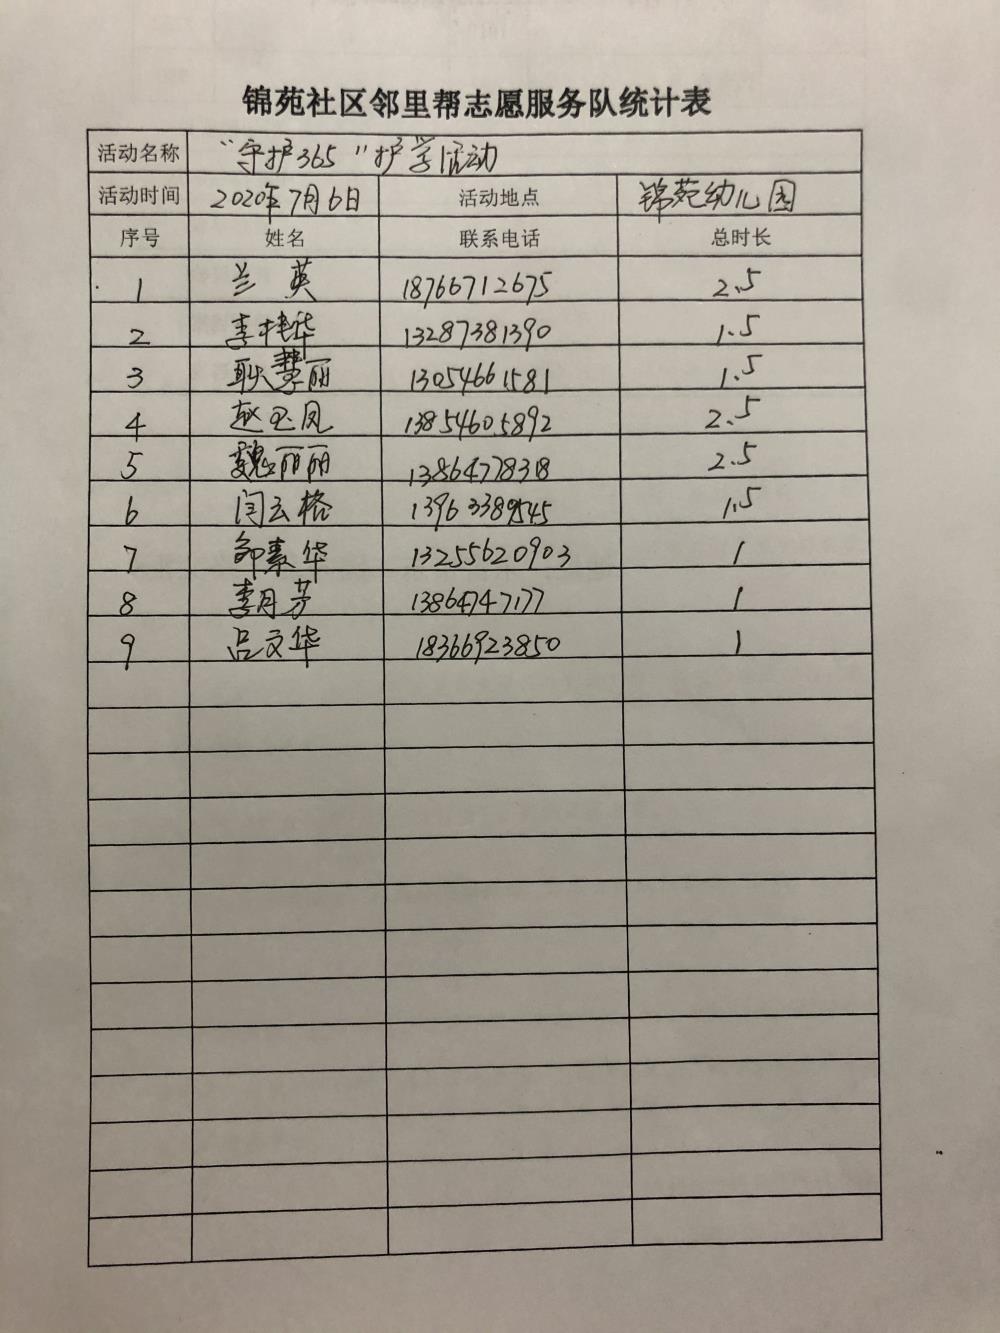 锦苑社区邻里帮志愿服务队统计表
活动名称 “守护365”护学活动
活动时间 2020年7月6日 活动地点 锦苑幼儿园
序号 姓名 联系电话 总时长
1 兰英 18766712675 2.5
2 李桂华 13287381390 1.5
3 耿慧丽 13054661581 1.5
4 赵玉凤 13854605892 2.5
5 魏丽丽 13864778318 2.5
6 闫云格 13963389545 1.5
7 邹素华 13255620903 1
8 李月芳 13864747177 1
9 吕文华 18366923850 1